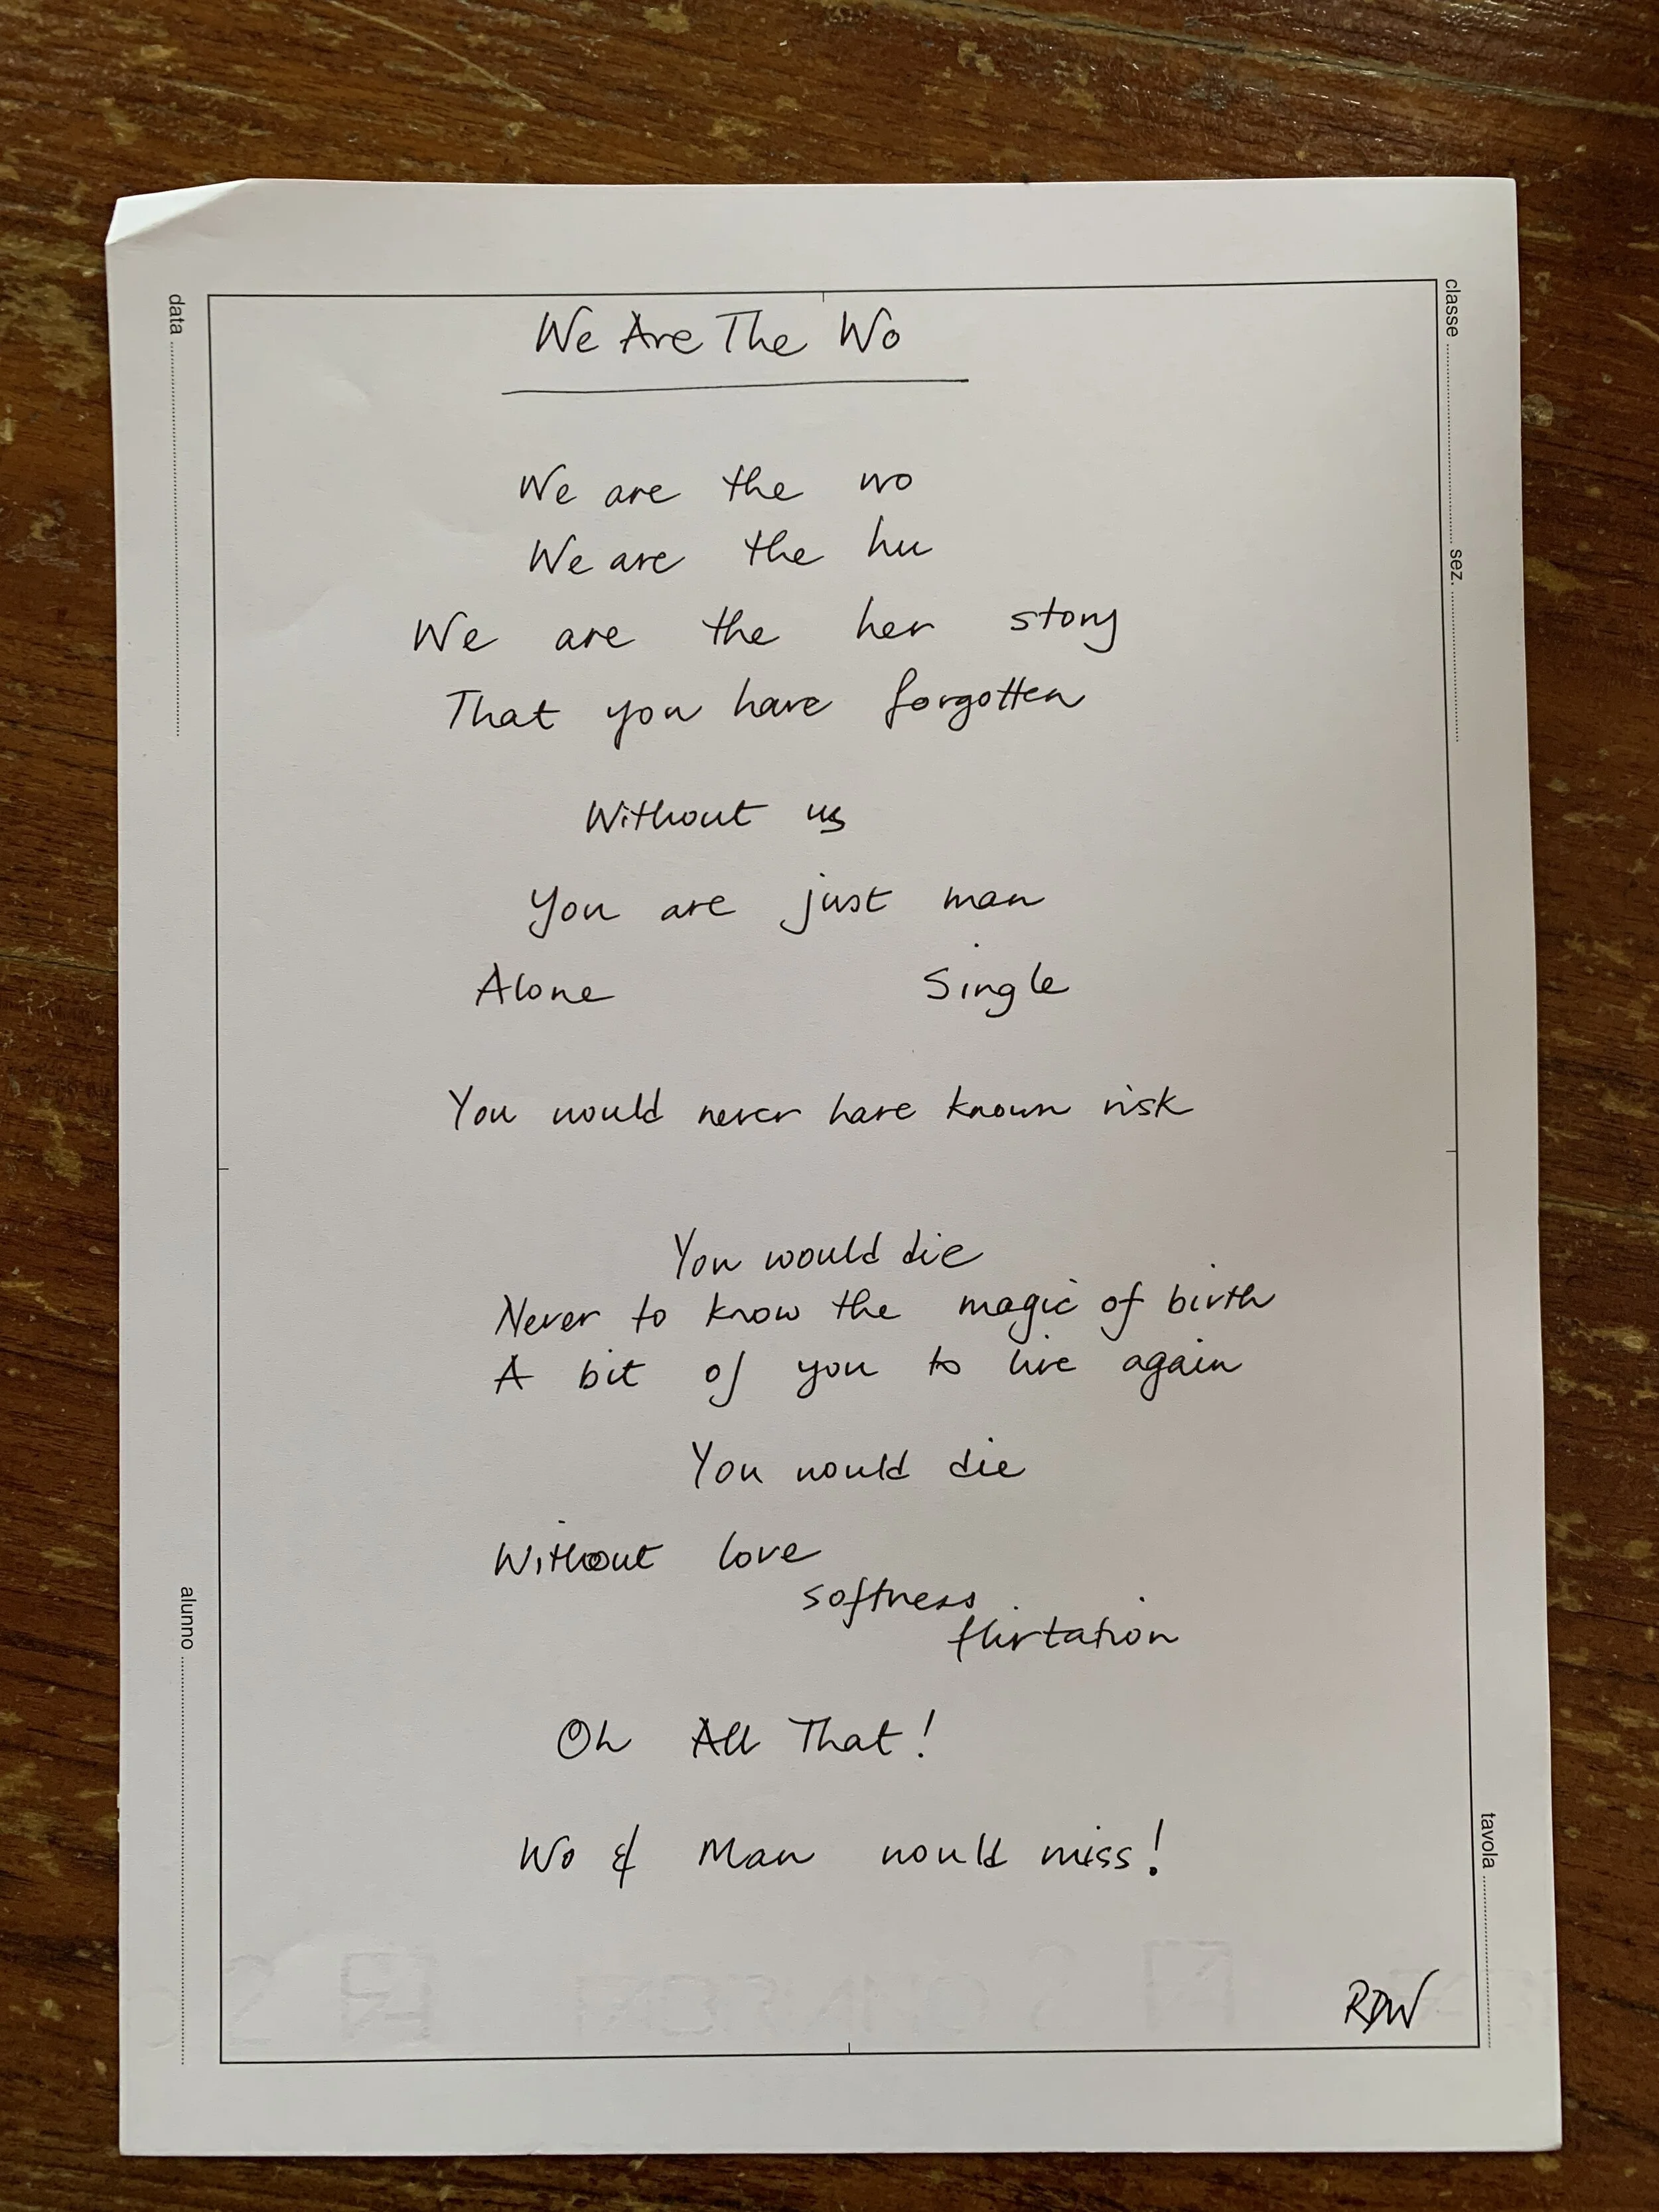 We Are The Wo
We are the wo
We are the hu
We are the her story
That you have forgotten
Without us
You are just man
Alone Single
You would never have known risk
You would die
Never to know the magic of birth
A bit of you to live again
You would die
Without love
softness
flirtation
Oh All That!
Wo & Man would miss!
RDW
data
alunno
classe
sez.
tavola